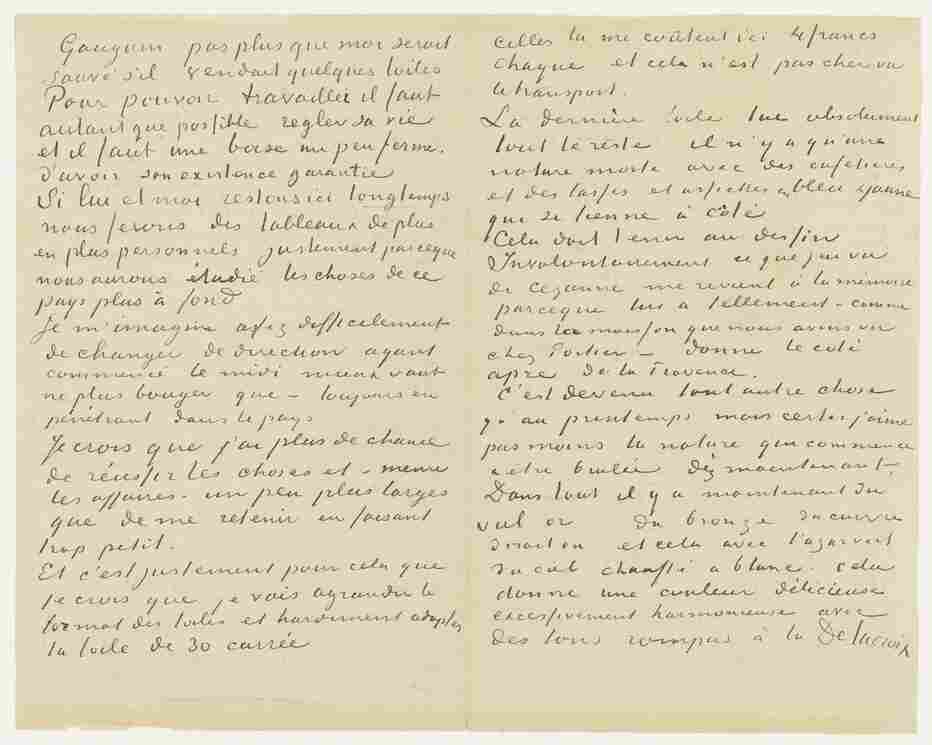 Gauguin pas plus que moi serait
sauvé s'il vendait quelques toiles
Pour pouvoir travailler il faut
autant que possible regler sa vie
et il faut une base un peu ferme.
d'avoir son existence garantie
Si lui et moi restons ici longtemps
nous ferons des tableaux de plus
en plus personnels justement parceque
nous aurons étudié les choses de ce
pays plus à fond
Je m'immagine assez difficilement
de changer de direction ayant
commencé le midi mieux vaut
ne plus bouger que – toujours en
pénétrant dans le pays
Je crois que j'ai plus de chance
de réussir les choses et – meme
les affaires – un peu plus larges
que de me retenir en faisant
trop petit.
Et c'est justement pour cela que
je crois que je vais agrandir le
format des toiles et hardiment adopter
la toile de 30 carrée
celles la me coûtent ici 4 francs
chaque et cela n'est pas cher vu
le transport.
La dernière toile tue absolument
tout le reste il n'y a qu'une
nature morte avec des cafetieres
et des tasses et assiettes en bleu & jaune
qui se tienne à côté
Cela doit tenir au dessin
Involontairement ce que j'ai vu
de Cezanne me revient à la mémoire
parceque lui a tellement – comme
dans la moisson que nous avons vu
chez Portier – donné le coté
apre de la Provence.
C'est devenu tout autre chose
qu'au printemps mais certes j'aime
pas moins la nature qui commence
a etre brulée dès maintenant.
Dans tout il y a maintenant du
vieil or du bronze du cuivre
dirait on et cela avec l'azur vert
du ciel chauffé a blanc. cela
donne une couleur délicieuse
excessivement harmonieuse avec
des tons rompus à la Delacroix